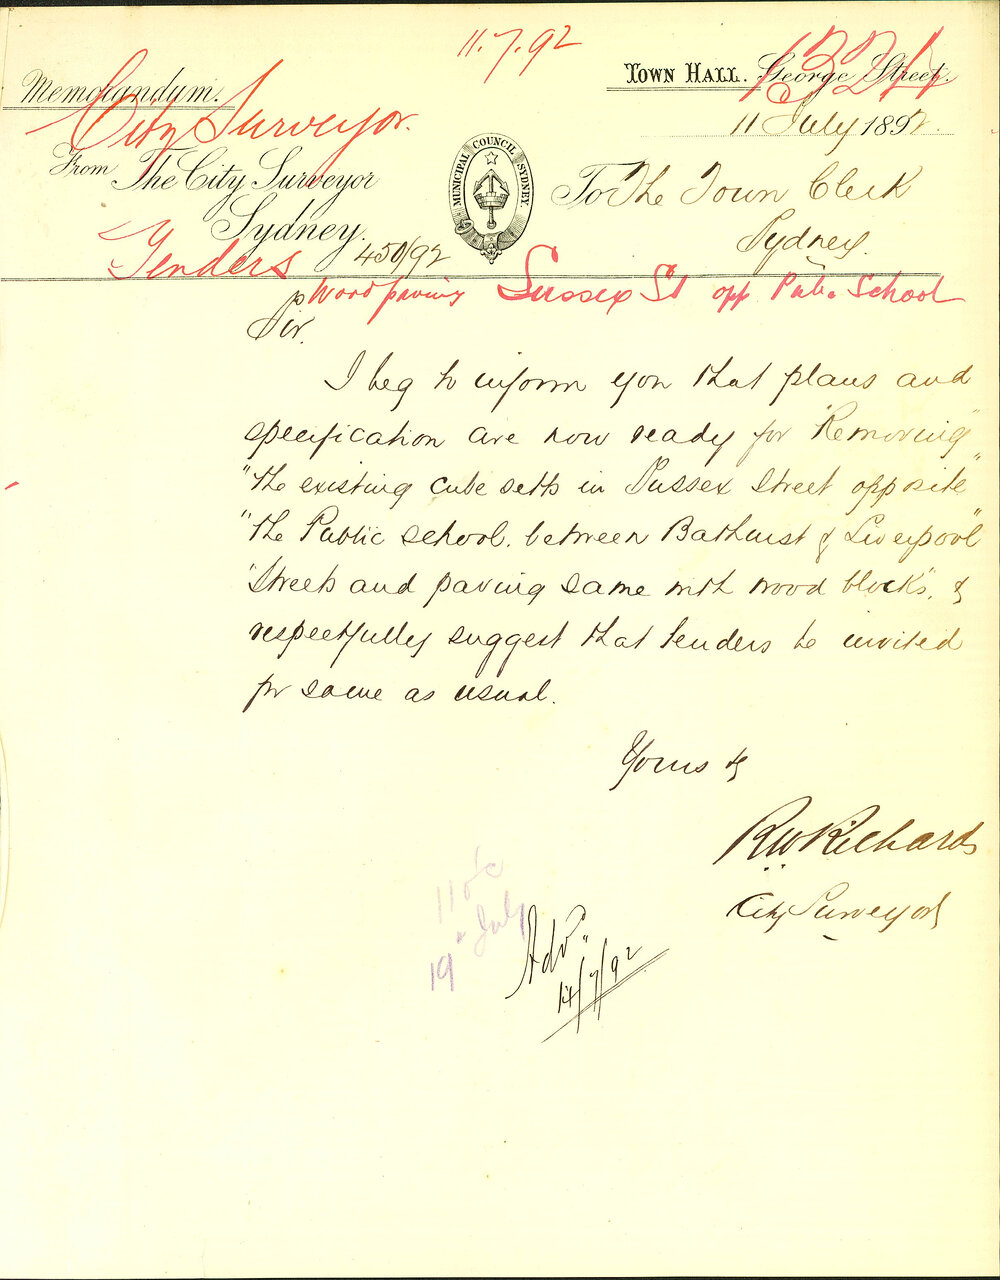 11.7.92
1321
Memorandum.
TOWN HALL. George Street.
City Surveyor.
11 July 1892.
From The City Surveyor
MUNICIPAL COUNCIL SYDNEY.
To The Town Clerk
Sydney.
Sydney.
Tenders
450/92
Wood paving Sussex St opp Pub. School
Sir.
I beg to inform you that plans and
specification are now ready for "Removing
"the existing cube setts in Sussex Street opposite"
"the Public school. between Bathurst & Liverpool"
"Streets and paving same with wood blocks", &
respectfully suggest that tenders be invited
for same as usual.
Yours &c
RW Richards
City Surveyor
11 o'c
19" July
Adv.d
14/7/92